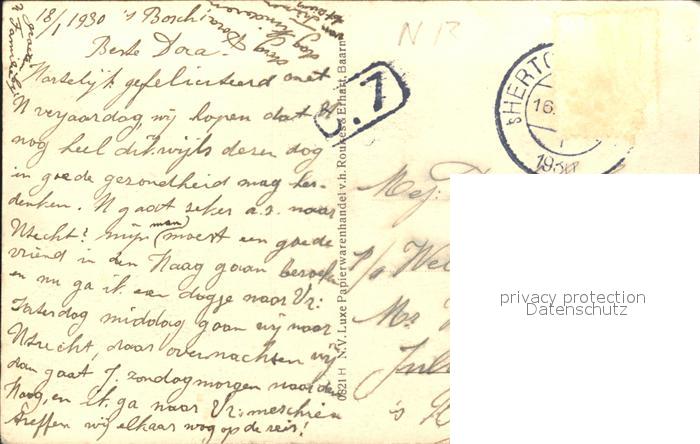 18/1 1930 's Bosch;
Beste Dora.
Hartelijk gefeliciteerd met
Uw verjaardag, wij hopen dat U
nog heel dikwijls dezen dag
in goede gezondheid mag her-
denken. U gaat zeker a.s. naar
Utrecht? mijn man moest een goede
vriend in den Haag gaan bezoeken
en nu ga ik een dagje naar Ur:
Zaterdag middag gaan wij naar
Utrecht, daar overnachten wij
dan gaat J. zondagmorgen naar den
Haag, en ik ga naar Ur: misschien
treffen wij elkaar nog op de reis!
0621 H N.V. Luxe Papierwarenhandel v.h. Roukes & Erhart, Baarn
N B
.7
's HERTO
16.
1930
Mej:
p/a We
's
privacy protection
Datenschutz